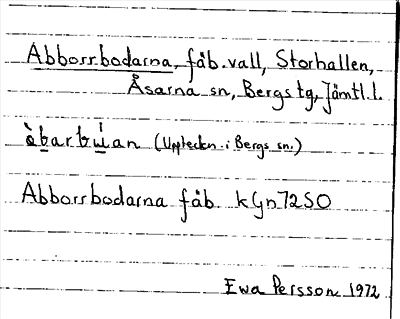 Abborrbodarna, fäb.vall, Storhallen,
Åsarna sn, Bergs tg, Jämtl.l.
àbarbu̇́an (Uppteckn. i Bergs sn.)
Abborrbodarna fäb. kGn72SO
Ewa Persson 1972